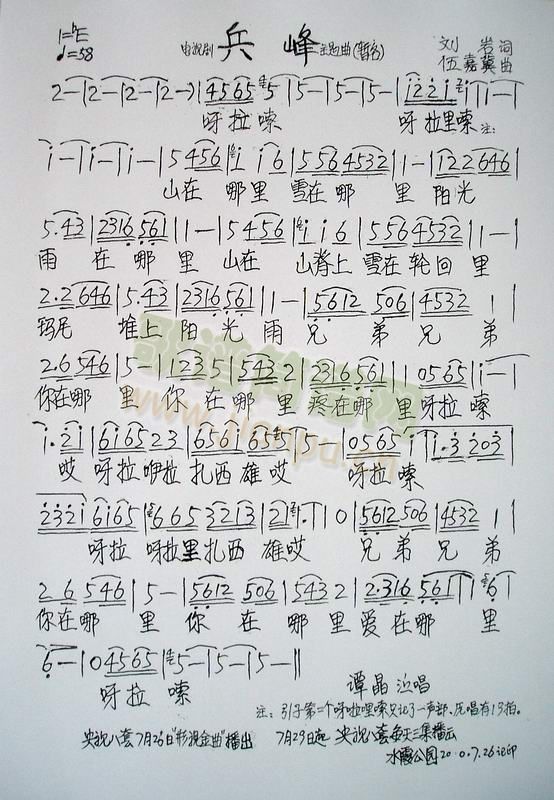 1=♭E
♩=58
电视剧 兵 峰 主题曲(暂名)
刘 岩 词
伍嘉冀 曲
2-|2-|2-|2-|4565 5|5-|5-|5-|i22i i|i-|
呀拉嗦 呀拉里嗦 注:
i-|i-|i-|5 456|i i 6|556 4532|1-|122 646|
山在 哪里 雪在哪 里 阳光
5.43|2316 561|1-|5 456|i i 6|556 4532|1-|
雨 在 哪 里 山在 山脊上 雪在轮回 里
2.2 646|5.43|2316 561|1-|5612 506|4532 1|
玛尼 堆上 阳光 雨 兄 弟 兄 弟
2.6 546|5-|123 5|543 2|2316 561|1 0565|i-|
你在哪 里 你 在哪 里 疼在哪 里呀拉 嗦
i.2i|6i65 23|6561 65|5.|0565 i|i.3 203|
哎 呀拉咿拉 扎西 雄哎 呀拉 嗦
232i 6i65|665 3213|21.|1 0|5612 506|4532 1|
呀拉 呀拉里扎西 雄哎 兄 弟 兄 弟
2 6 546|5-|5612 506|543 2|2.316 561|6|
你在哪 里 你 在 哪 里 爱在哪 里
6-|0 4565|5-|5-|5-‖
呀拉 嗦
谭晶 演唱
注:引子第二个呀拉哩嗦只记了一声部、原唱有13拍。
央视八套7月26日"影视金曲"播出 7月29日起 央视八套每天三集播出
水霞公园2010.7.26记印